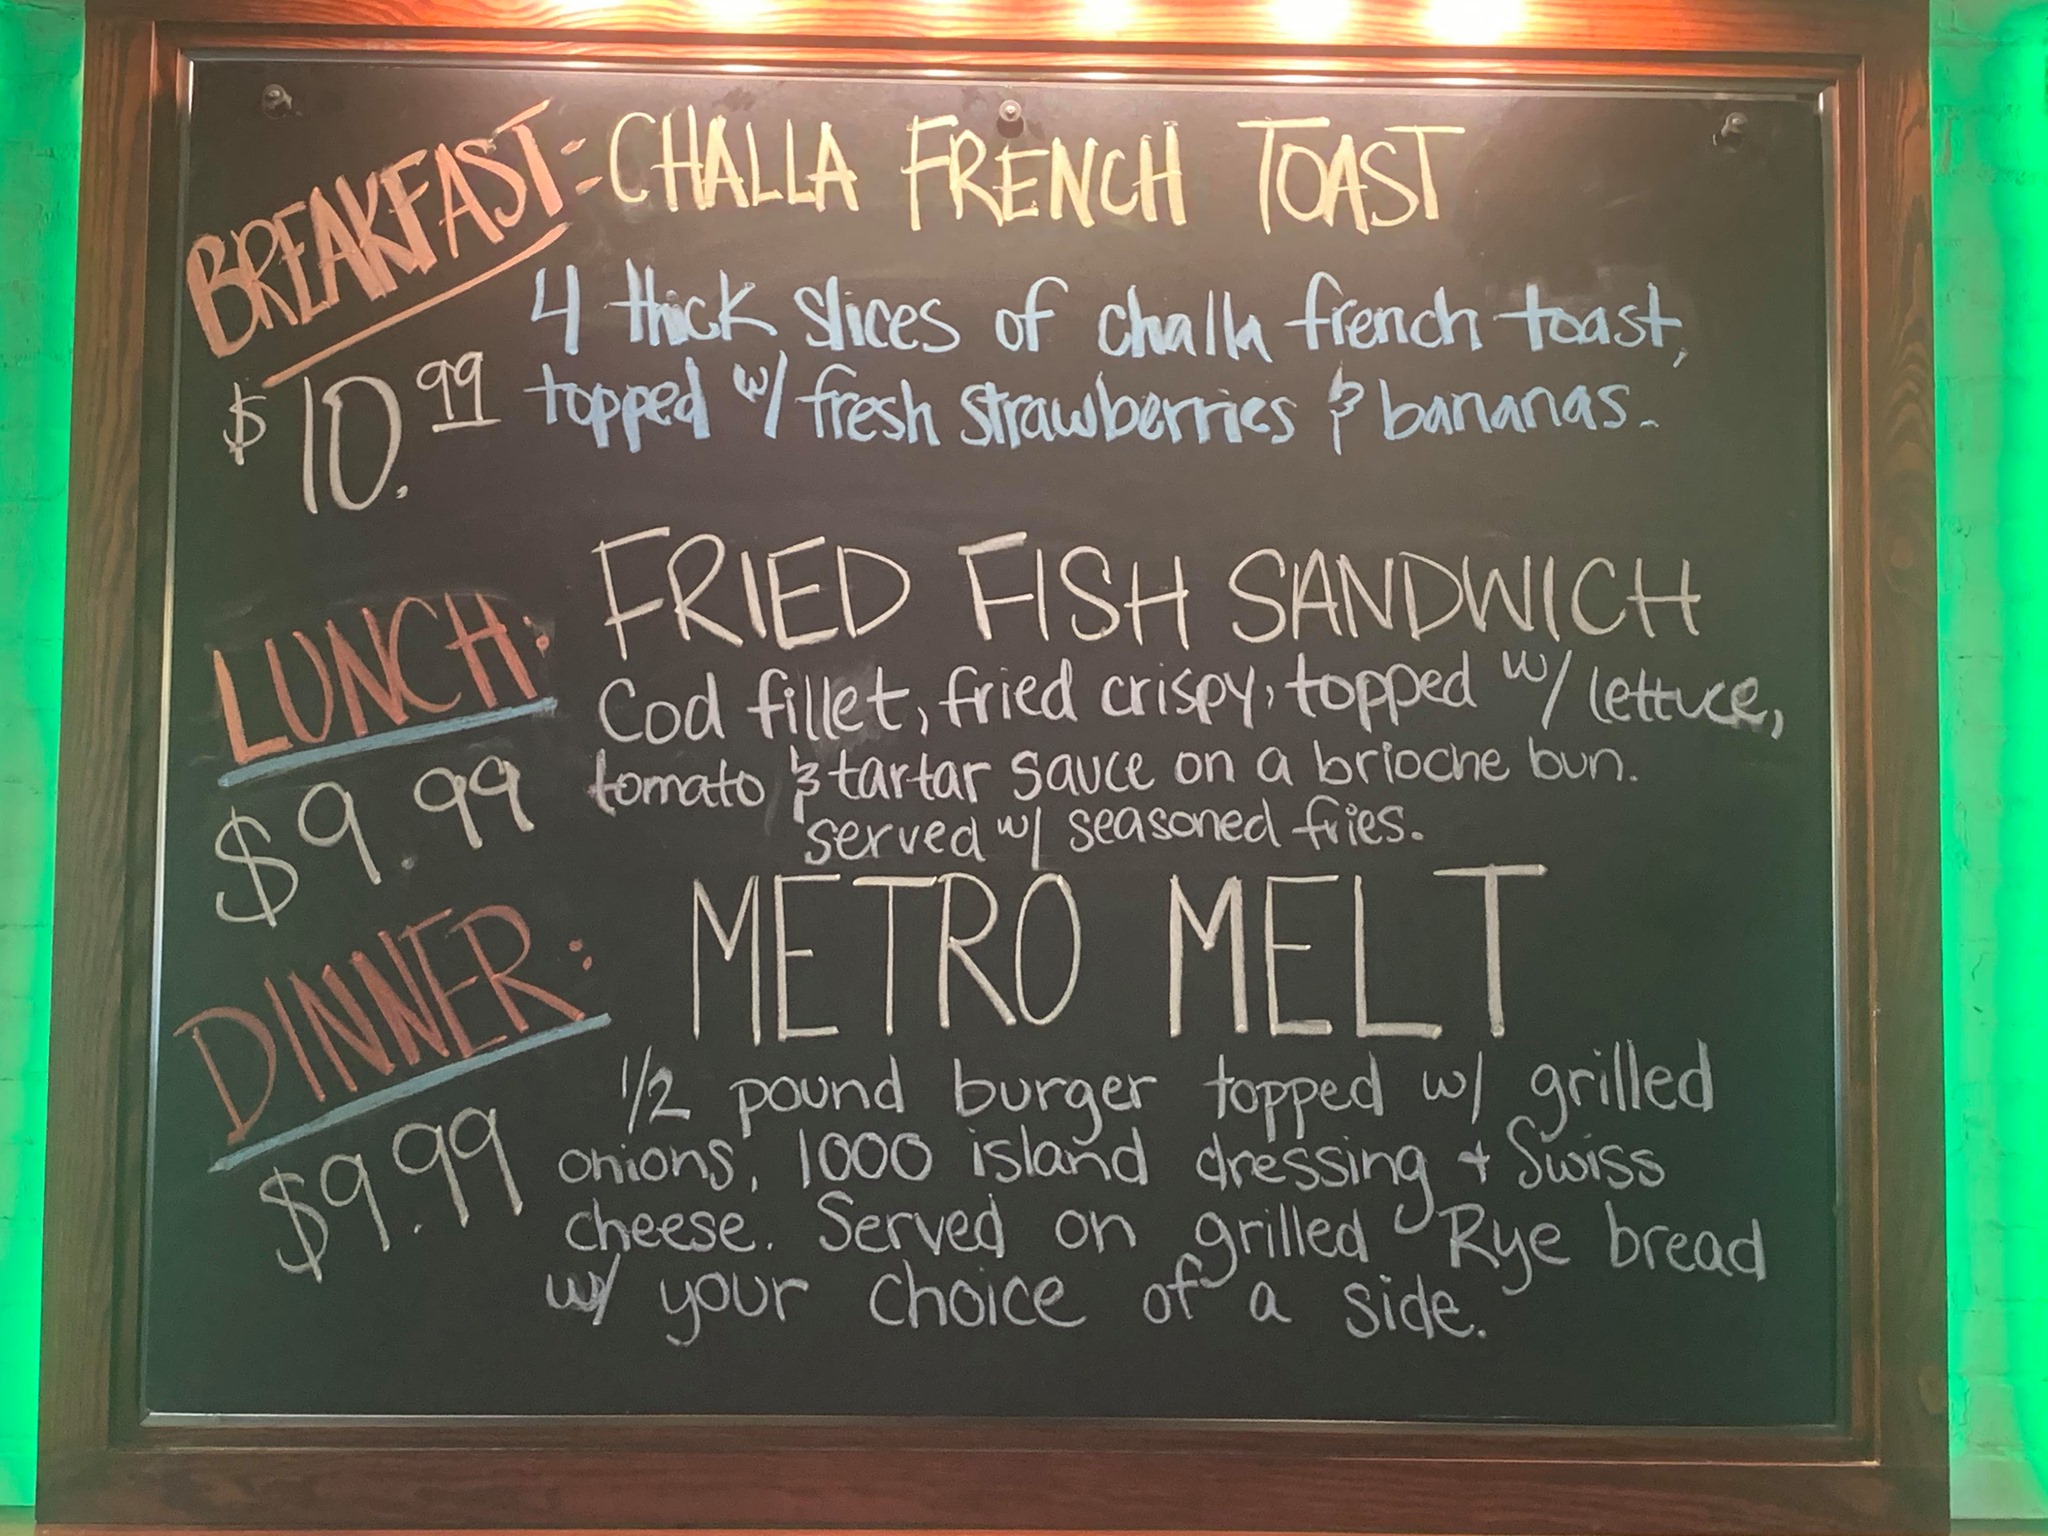 BREAKFAST: CHALLA FRENCH TOAST
$10.99
4 thick slices of challa french toast,
topped w/ fresh strawberries & bananas.
LUNCH: FRIED FISH SANDWICH
$9.99
Cod fillet, fried crispy, topped w/ lettuce,
tomato & tartar sauce on a brioche bun.
served w/ seasoned fries.
DINNER: METRO MELT
$9.99
1/2 pound burger topped w/ grilled
onions, 1000 island dressing + Swiss
cheese. Served on grilled Rye bread
w/ your choice of a side.